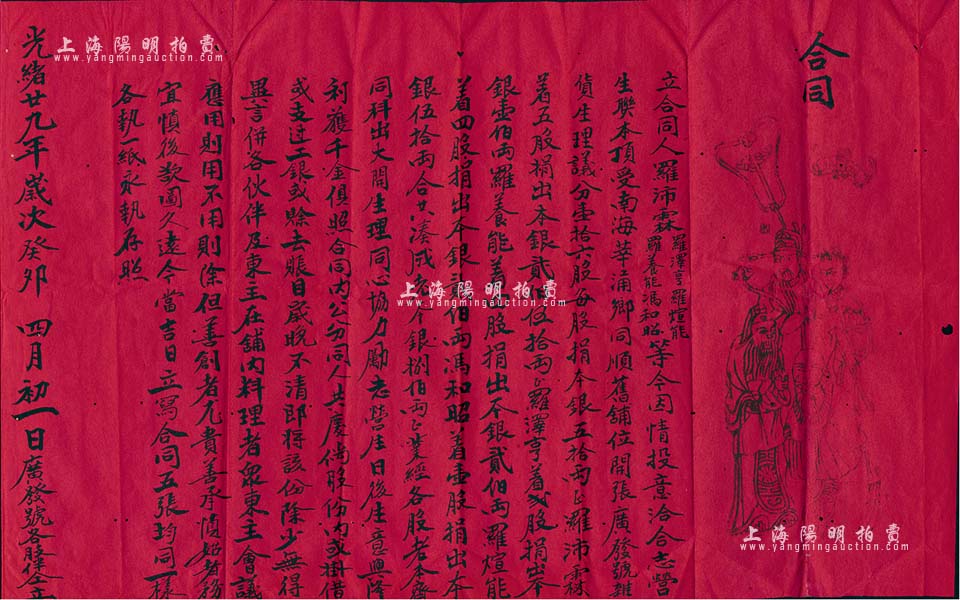 合同
立合同人羅沛霖羅澤亨羅煊能羅養能馮和昭等今因情投意洽合志營
生聯本頂受南海華涌鄉同順舊舖位開張廣發號雜
貨生理議分壹拾六股每股捐本銀五拾両正羅沛霖
着五股捐出本銀貳佰伍拾両正羅澤亨着股捐出本
銀壹佰両羅養能着股捐出本銀貳佰両羅煊能
着四股捐出本銀貳佰両馮和昭着壹股捐出本
銀伍拾両合共湊成本銀捌佰両正業經各股者本齊
同科出大開生理同心協力勵志營生日後生意興隆
利獲千金俱照合同內公分同人共慶倘股份內或掛借
或支過銀或賒去賬目歲晚不清即將該份除少無得
異言併各伙伴及東主在舖內料理者眾東主會議
應用則用不用則除但善創者尤貴善承慎始者務
宜慎後欵圖久遠今當吉日立寫合同五張均同一樣
各執一紙永執存照
光緒廿九年歲次癸卯 四月初一日廣發號各股仝立
上海陽明拍賣
www.yangmingauction.com
上海陽明拍賣
www.yangmingauction.com
上海陽明拍賣
www.yangmingauction.com